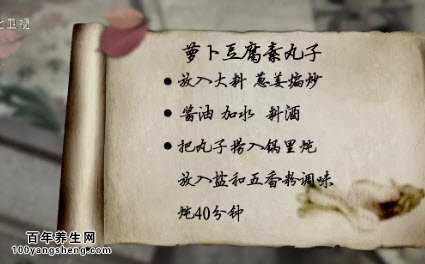 卫视
萝卜豆腐素丸子
放入大料 葱姜煸炒
酱油 加水 料酒
把丸子捞入锅里炖
放入盐和五香粉调味
炖40分钟
百年养生网
100yangsheng.com